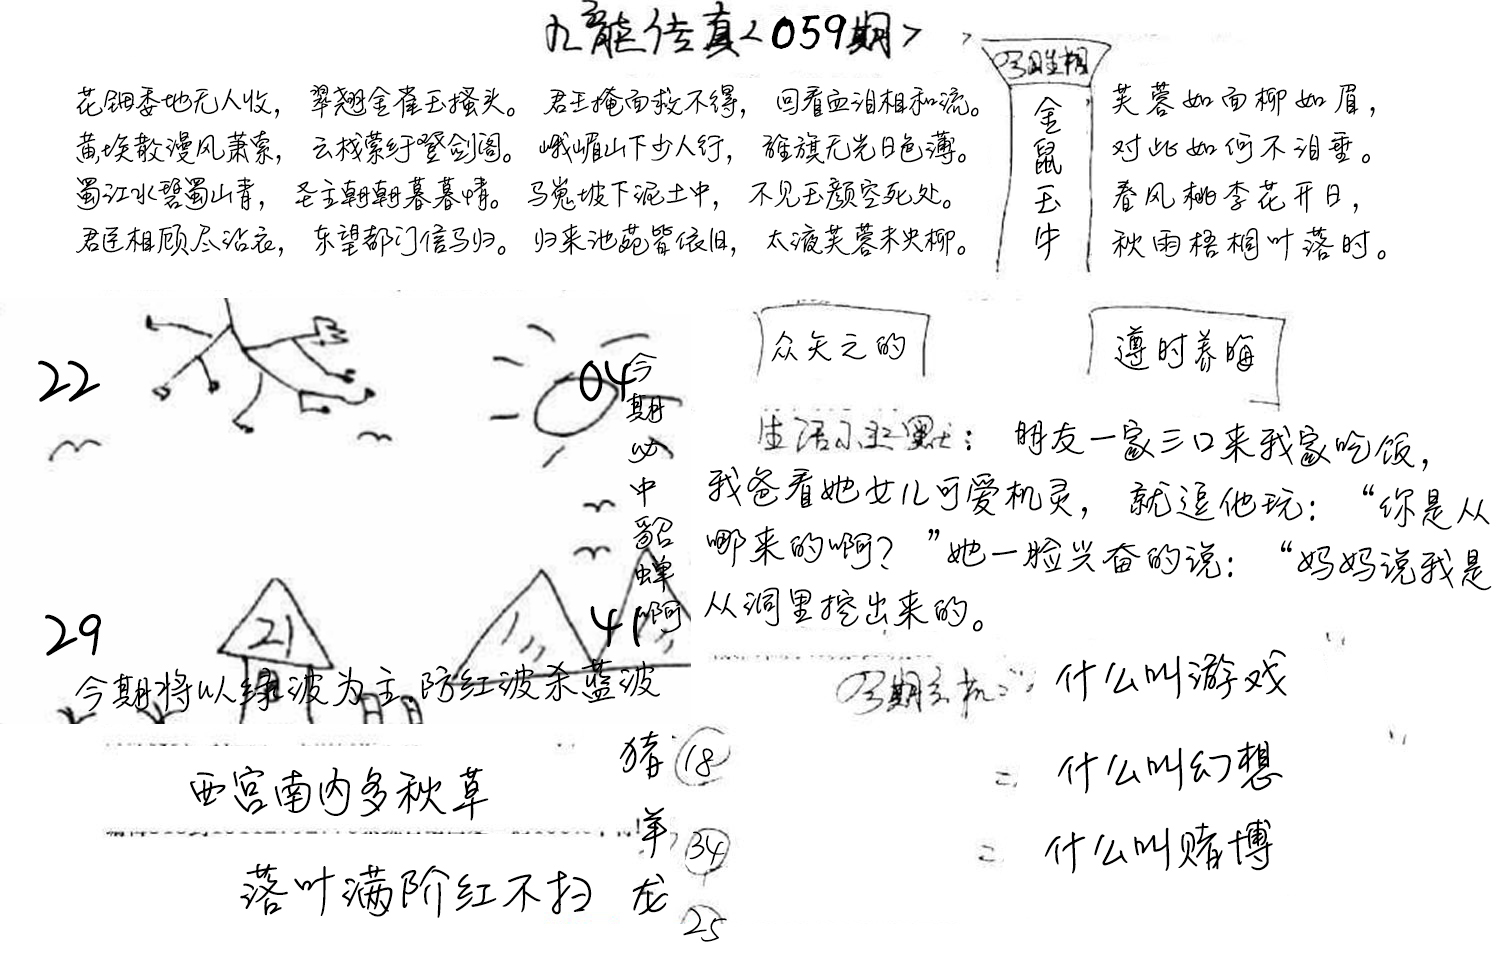 九龍传真<059期>
花钿委地无人收，翠翘金雀玉搔头。君王掩面救不得，回看血泪相和流。
黄埃散漫风萧索，云栈萦纡登剑阁。峨嵋山下少人行，旌旗无光日色薄。
蜀江水碧蜀山青，圣主朝朝暮暮情。马嵬坡下泥土中，不见玉颜空死处。
君臣相顾尽沾衣，东望都门信马归。归来池苑皆依旧，太液芙蓉未央柳。
金鼠玉牛
芙蓉如面柳如眉，
对此如何不泪垂。
春风桃李花开日，
秋雨梧桐叶落时。
22
04
29
21
41
今期必中貂蝉啊
今期将以绿波为主防红波杀蓝波
众矢之的
遵时养晦
生活小幽默：朋友一家三口来我家吃饭，
我爸看她女儿可爱机灵，就逗他玩：“你是从
哪来的啊？”她一脸兴奋的说：“妈妈说我是
从洞里挖出来的。
什么叫游戏
二 什么叫幻想
二 什么叫赌博
西宫南内多秋草
落叶满阶红不扫
猪 18
羊 34
龙 25